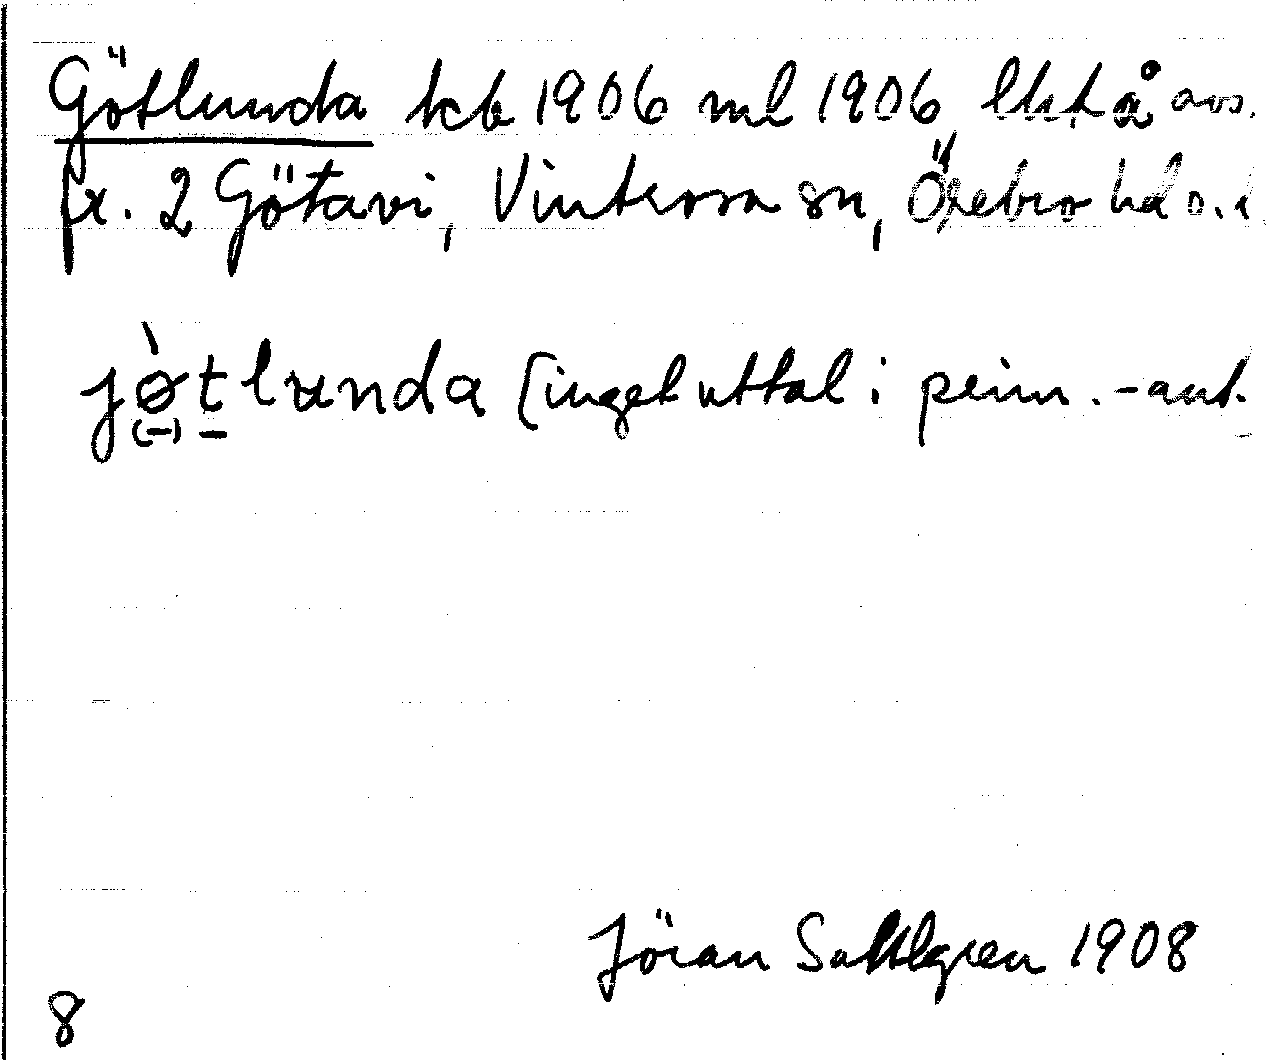 Götlunda kcb 1906 ml 1906, lht å avs.
fr. 2 Götavi, Vintrosa sn, Örebro hd o. l
jø̀tlunda (inget uttal i prim. -ant.
Jöran Sahlgren 1908
8